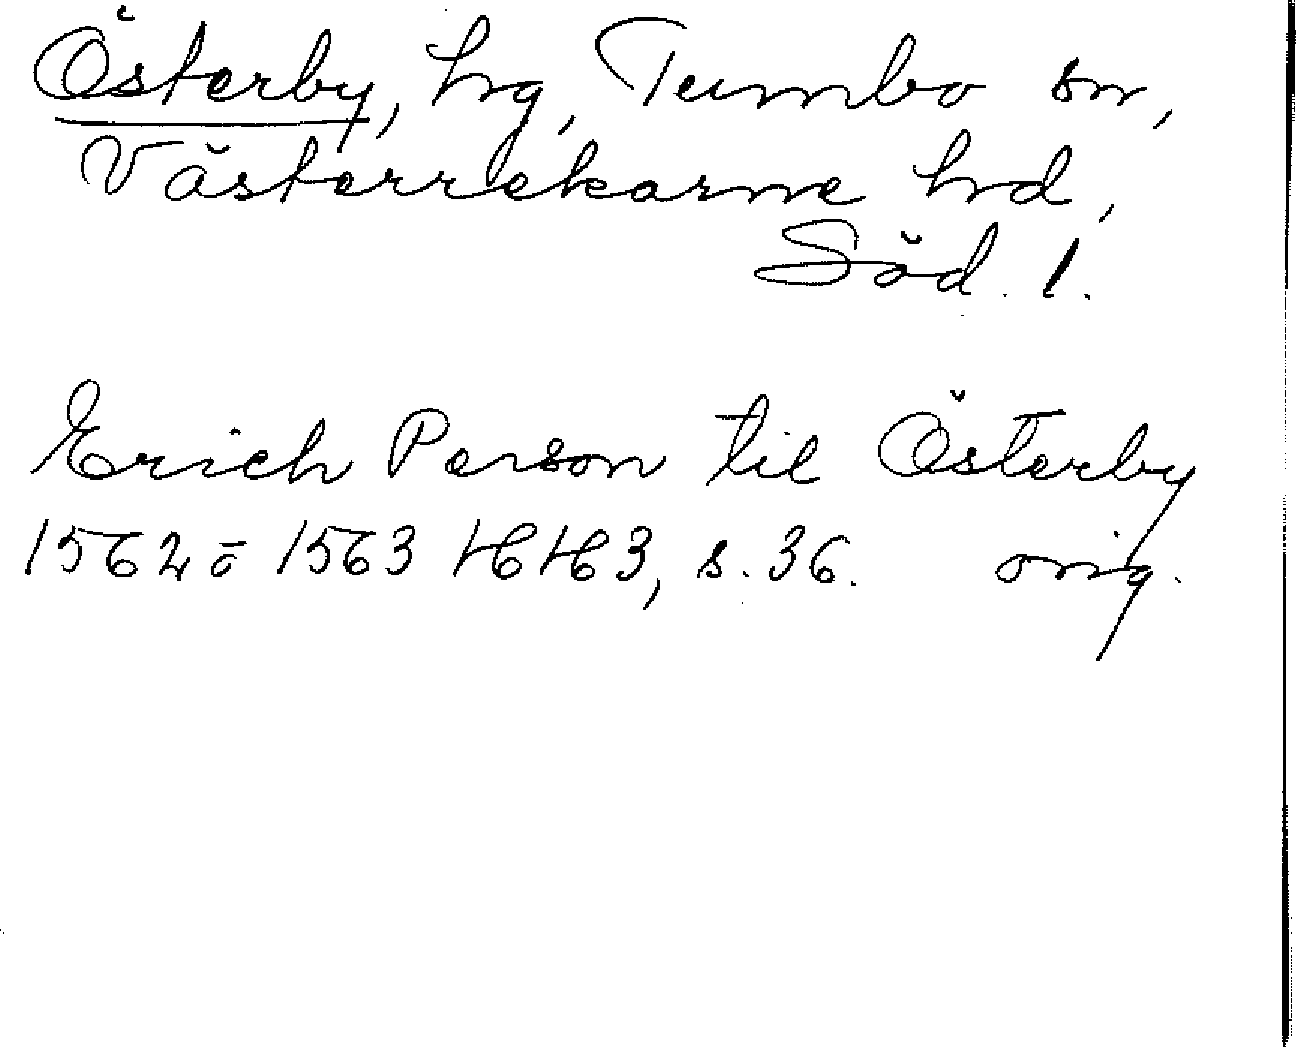 Österby, hg, Tumbo sn,
Västerrekarne hrd,
Söd. l.
Erich Person til Österby
1562 ö 1563 HH 3, s. 36. orig.